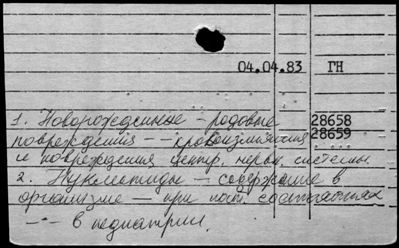 04.04.83 ГН
1. Новорожденные - родовые 28658
повреждения - - кровоизлияния 28659
и повреждения центр. нервн. системы.
2. Нуклеотиды - содержание в
организме - при пат. состояниях
- - в педиатрии.